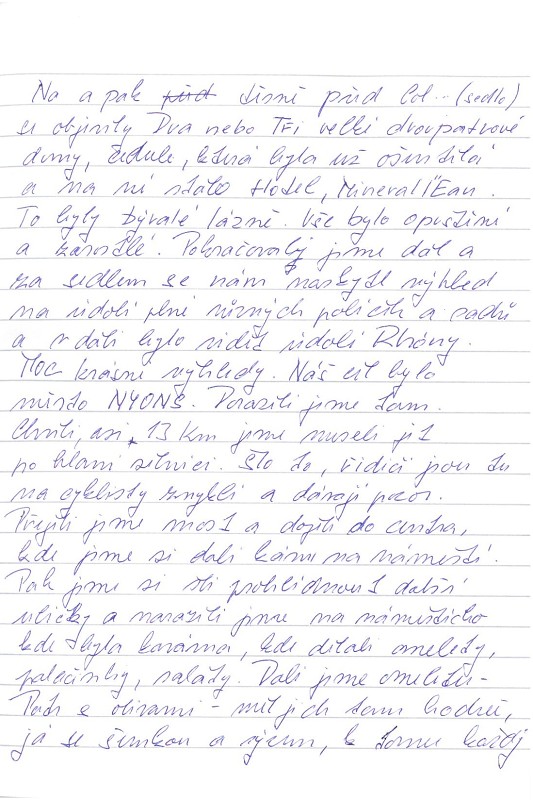 Na a pak před těsně před Col -- (sedlo)
se objevily Dva nebo Tři velké dvoupatrové
domy, cedule, která byla už ošuntělá
a na ní stálo Hôtel, Mineral l'Eau.
To byly bývalé lázně. Vše bylo opuštěné
a zarostlé. Pokračovaly jsme dál a
za sedlem se nám naskytl výhled
na údolí plné různých políček a sadů
a v dáli bylo vidět údolí Rhôny.
Moc krásné výhledy. Náš cíl bylo
město NYONS. Dorazili jsme tam.
Chvíli, asi 13 km jsme museli jet
po hlavní silnici. Šlo to, řidiči jsou tu
na cyklisty zvyklí a dávají pozor.
Přejeli jsme most a dojeli do centra,
kde jsme si dali kávu na náměstí.
Pak jsme si šli prohlédnout další
uličky a narazili jsme na náměstíčko
kde byla kavárna, kde dělali omelety,
palačinky, saláty. Dali jsme omeletu -
Petr s olivami - měl jich tam hodně,
já se šunkou a sýrem, k tomu každý